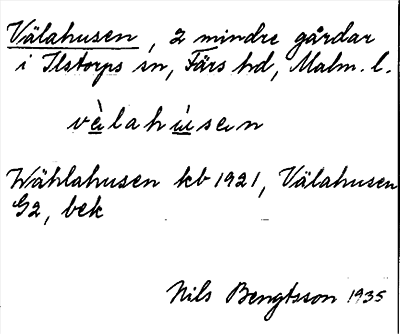 Välahusen, 2 mindre gårdar
i Ilstorps sn, Färs hd, Malm. l.
vèlahùsen
Wählahusen kb 1921, Välahusen
G2, bek
Nils Bengtsson 1935